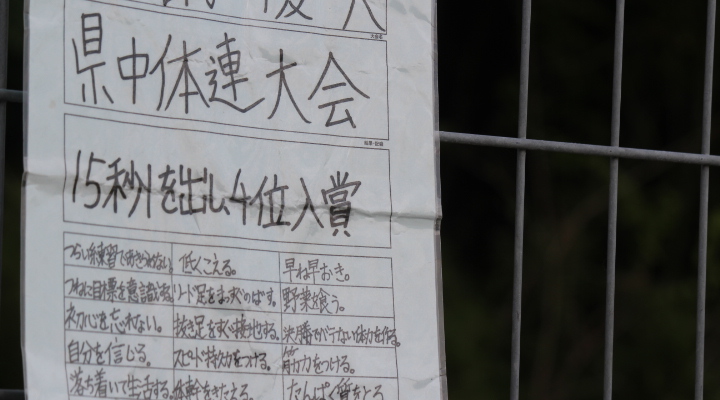 大会名
県中体連大会
結果・記録
15秒1を出し4位入賞
つらい練習であきらめない。 低くこえる。 早ね早おき。
つねに目標を意識する リード足をまっすぐのばす。 野菜を食う。
初心を忘れない。 抜き足をすぐ接地する。 決勝でバテない体力を作る。
自分を信じる。 スピード持久力をつける。 筋力をつける。
落ち着いて生活する。 体幹をきたえる。 たんぱく質をとる